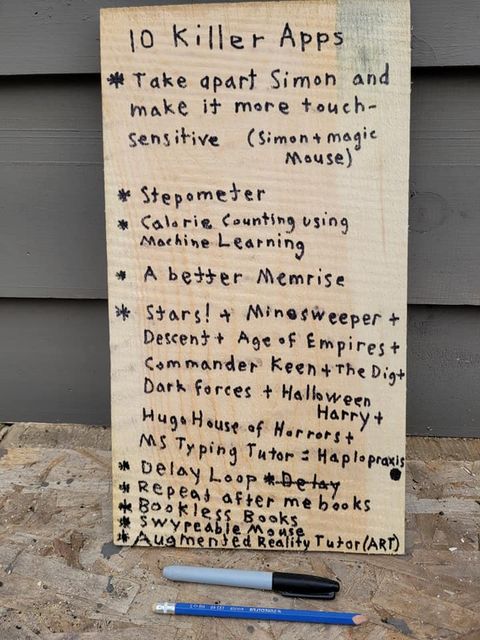 10 Killer Apps
* Take apart Simon and
make it more touch-
sensitive (Simon + magic
Mouse)
* Stepometer
* Calorie Counting using
Machine Learning
* A better Memrise
* Stars! + Minesweeper +
Descent + Age of Empires +
Commander Keen + The Dig +
Dark Forces + Halloween
Harry +
Hugo House of Horrors +
MS Typing Tutor = Haplopraxis
* Delay Loop * Delay
* Repeat after me books
* Bookless Books
* Swyreable Mouse
* Augmented Reality Tutor (ART)